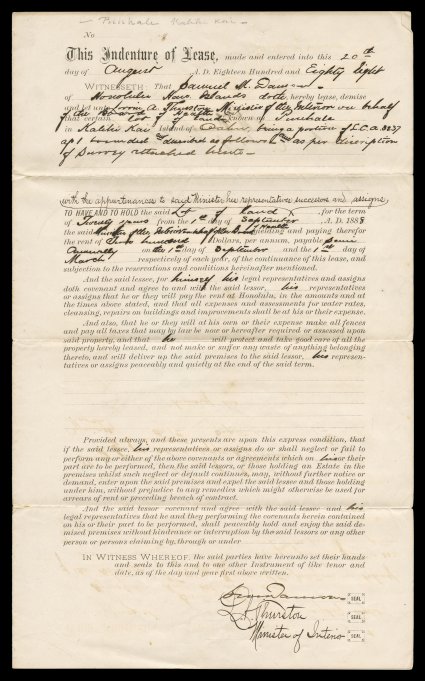 Puuhale Kalihi Kai
No
This Indenture of Lease, made and entered into this 20th
day of August A. D. Eighteen Hundred and Eighty Eight
WITNESSETH: That Samuel M. Damon
of Honolulu Haw Islands doth hereby lease, demise
and let unto Lorrin A Thurston Minister of the Interior on behalf
of the Board of Health
that certain Lot of Land known as Puuhale
in Kalihi Kai Island of Oahu, being a portion of L.C.A. 8237
ap 1 bounded and described as follows as per description
of Survey attached hereto
with the appurtenances to said Minister his representatives successors and assigns
TO HAVE AND TO HOLD the said Lot of Land for the term
of Twenty years from the 1st day of September A. D. 1888
the said Minister of the Interior on behalf of the Board of Health yielding and paying therefor
the rent of hundred Dollars, per annum, payable semi
annually on the 1st day of September and the 1st day of
March respectively of each year, of the continuance of this lease, and
subjection to the reservations and conditions hereinafter mentioned.
And the said lessee, for himself his legal representatives and assigns
doth covenant and agree to and with the said lessor, his representatives
or assigns that he or they will pay the rent at Honolulu, in the amounts and at
the times above stated, and that all expenses and assessments for water rates,
cleansing, repairs on buildings and improvements shall be at his or their expense.
And also, that he or they will at his own or their expense make all fences
and pay all taxes that may by law be now or hereafter required or assessed upon
said property, and that he will protect and take good care of all the
property hereby leased, and not make or suffer any waste of anything belonging
thereto, and will deliver up the said premises to the said lessor, his represen-
tatives or assigns peaceably and quietly at the end of the said term.
Provided always, and these presents are upon this express condition, that
if the said lessee, his representatives or assigns do or shall neglect or fail to
perform any or either of the above covenants or agreements which on his or their
part are to be performed, then the said lessors, or those holding an Estate in the
premises whilst such neglect or default continues, may, without further notice or
demand, enter upon the said premises and expel the said lessee and those holding
under him, without prejudice to any remedies which might otherwise be used for
arrears of rent or preceding breach of contract.
And the said lessor covenant and agree with the said lessee and his
legal representatives that he and they performing the covenants herein contained
on his or their part to be performed, shall peaceably hold and enjoy the said de-
mised premises without hindrance or interruption by the said lessors or any other
person or persons claiming by, through or under
IN WITNESS WHEREOF, the said parties have hereunto set their hands
and seals to this and to one other Instrument of like tenor and
date, as of the day and year first above written.
Damon SEAL
L A Thurston SEAL
Minister of Interior SEAL